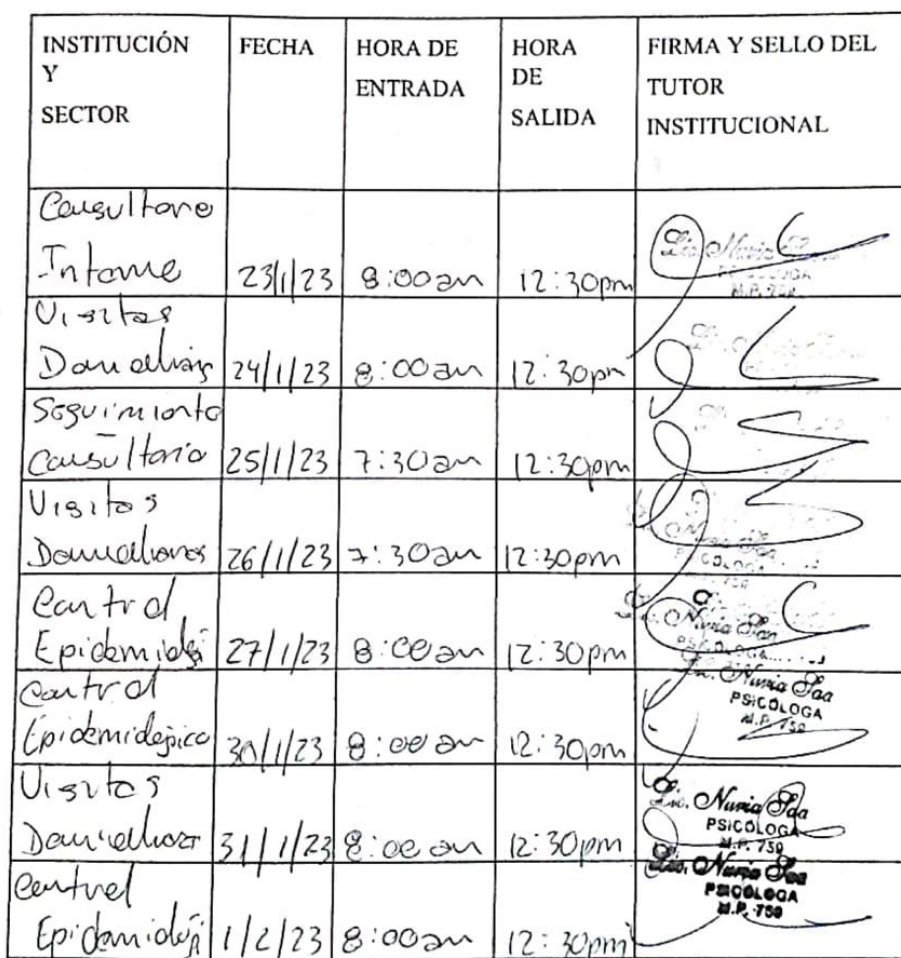 INSTITUCIÓN Y SECTOR	FECHA	HORA DE ENTRADA	HORA DE SALIDA	FIRMA Y SELLO DEL TUTOR INSTITUCIONAL
Consultorio
Interno 23/1/23 8:00am 12:30pm
Lic. Nuria Saa
PSICOLOGA
M.P. 759
Visitas
Domiciliarias 24/1/23 8:00am 12:30pm
Seguimiento
Consultorio 25/1/23 7:30am 12:30pm
Visitas
Domiciliarias 26/1/23 7:30am 12:30pm
Nuria Saa
PSICOLOGA
759
Control
Epidemiológi 27/1/23 8:00am 12:30pm
Lic. Nuria Saa
PSICOLOGA
Control
Epidemiológico 30/1/23 8:00am 12:30pm
Lic. Nuria Saa
PSICOLOGA
M.P. 759
Visitas
Domiciliarias 31/1/23 8:00am 12:30pm
Lic. Nuria Saa
PSICOLOGA
M.P. 759
Control
Epidemiológi 1/2/23 8:00am 12:30pm
Lic. Nuria Saa
PSICÓLOGA
M.P. 759